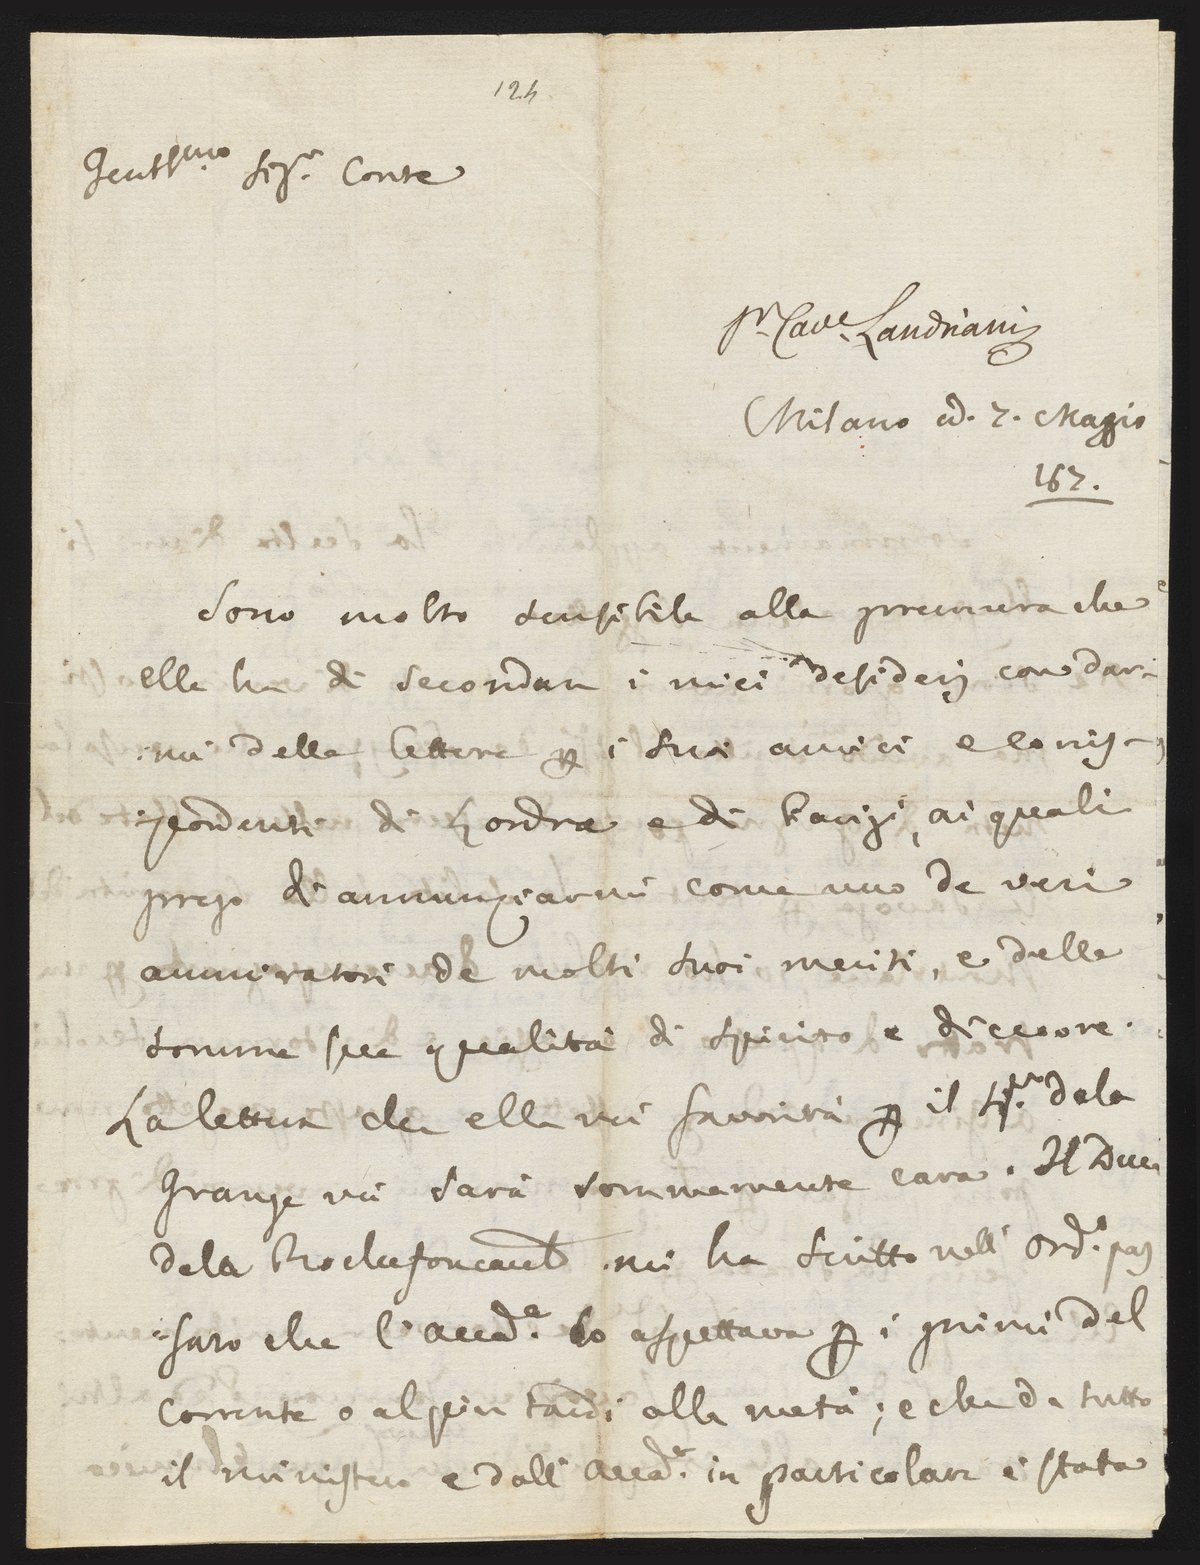 124
Gentssmo Sigr. Conte
Sr. Cave. Landriani
Milano ad. 2. Maggio
187.
Sono molto sensibile alla premura che
ella ha di secondare i miei desiderj con dar-
mi delle lettere per i suoi amici e corris-
pondenti di Londra e di Parigi, ai quali
prego di annunziarmi come uno de veri
ammiratori de molti suoi meriti, e delle
somme sue qualità di spirito e di cuore.
La lettera che ella mi favorirà per il Sigr. dela
Grange mi sarà sommamente cara. Il Duca
dela Rochefoucault mi ha scritto nell' Ordo. pas
sato che l'Accade. lo aspettava per i primi del
Corrente o al più tardi alla metà; e che da tutto
il ministero e dall' Accade. in particolare è stata